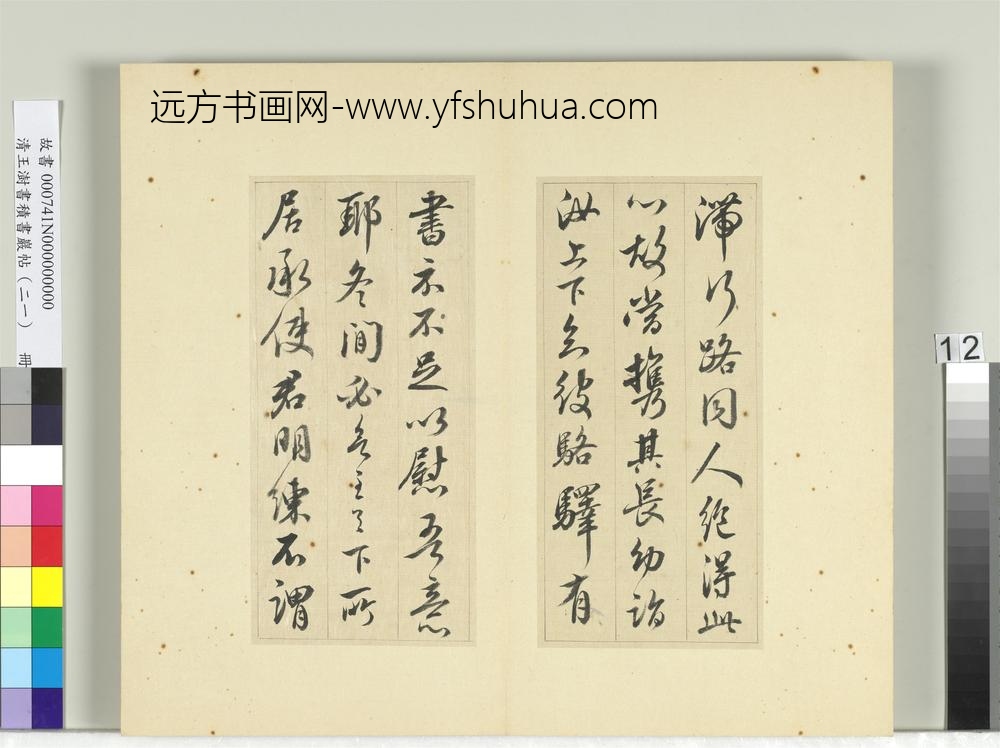 远方书画网-www.yfshuhua.com
故書 000741N000000000
清王澍書積書巖帖（二一） 冊
12
滯行路同人絕得此
心故當攜其長幼詣
汝上下念彼駱驛有
書示不足以慰吾意
耶冬間必至下所
居承使君明練不謂